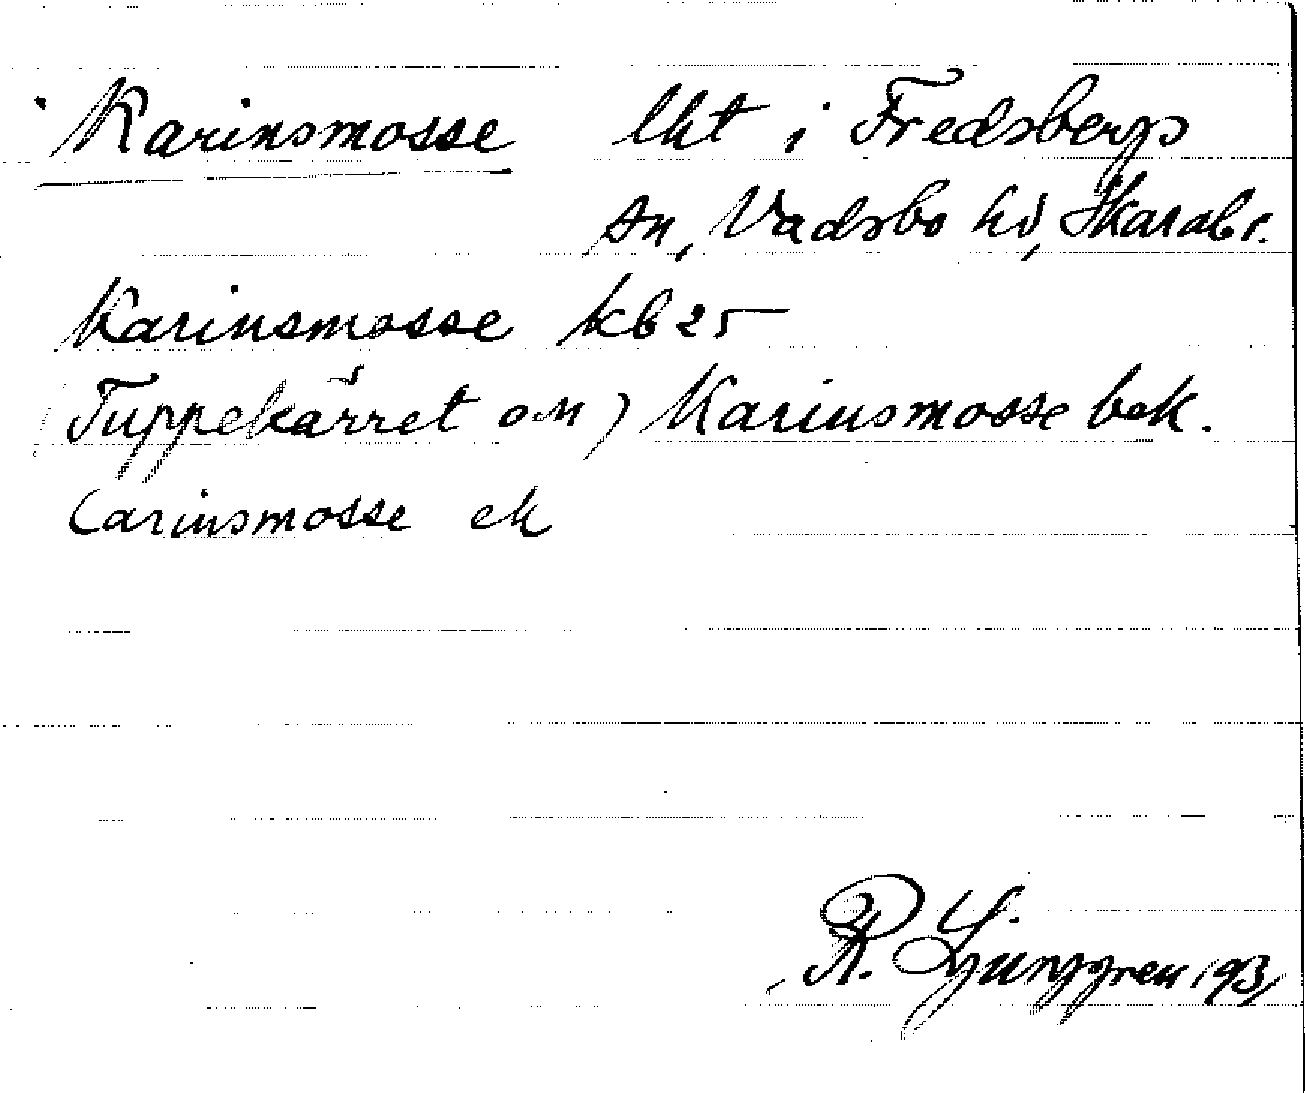 Karinsmosse lht i Fredsbergs
sn, Vadsbo hd, Skarabr.
Karinsmosse kb 25
Tuppekärret om) Karinsmosse bek.
Carinsmosse ek
R. Ljunggren 193